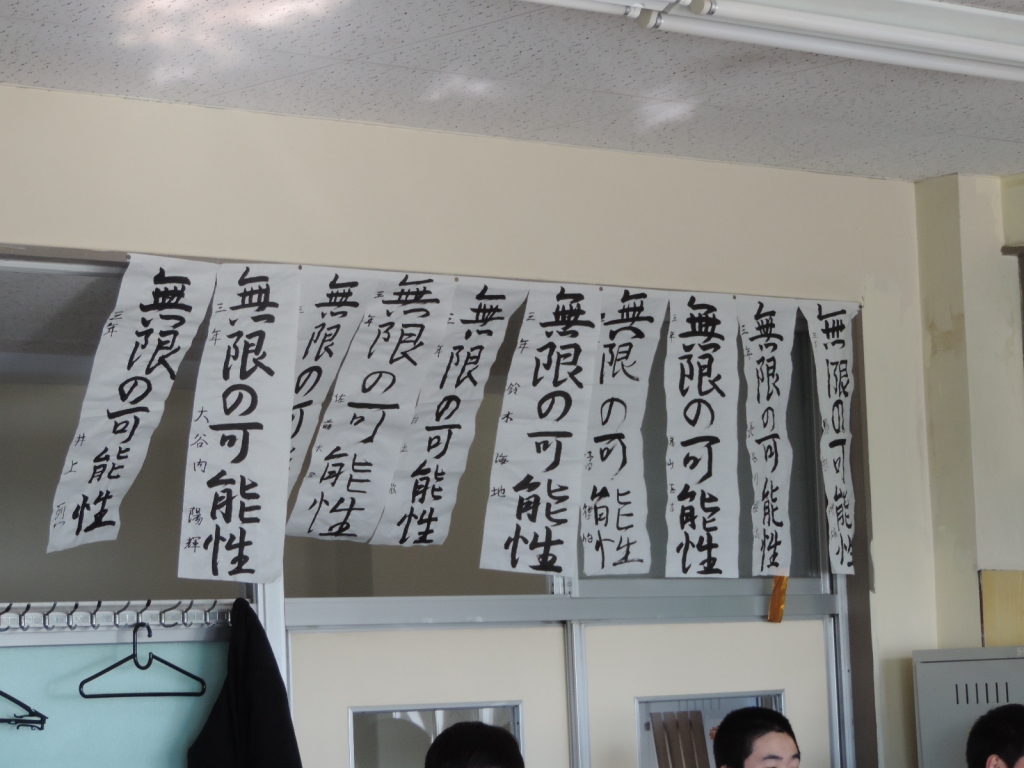 無限の可能性
三年
井上
無限の可能性
三年
大谷内陽輝
無限の可能性
三
無限の可能性
三年
佐
無限の可能性
三年
無限の可能性
三年
鈴木海地
無限の可能性
無限の可能性
三年
無限の可能性
三年
無限の可能性